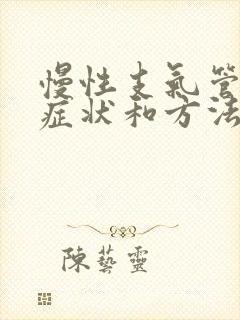 慢性支氣管
症状和方法
陳藝靈